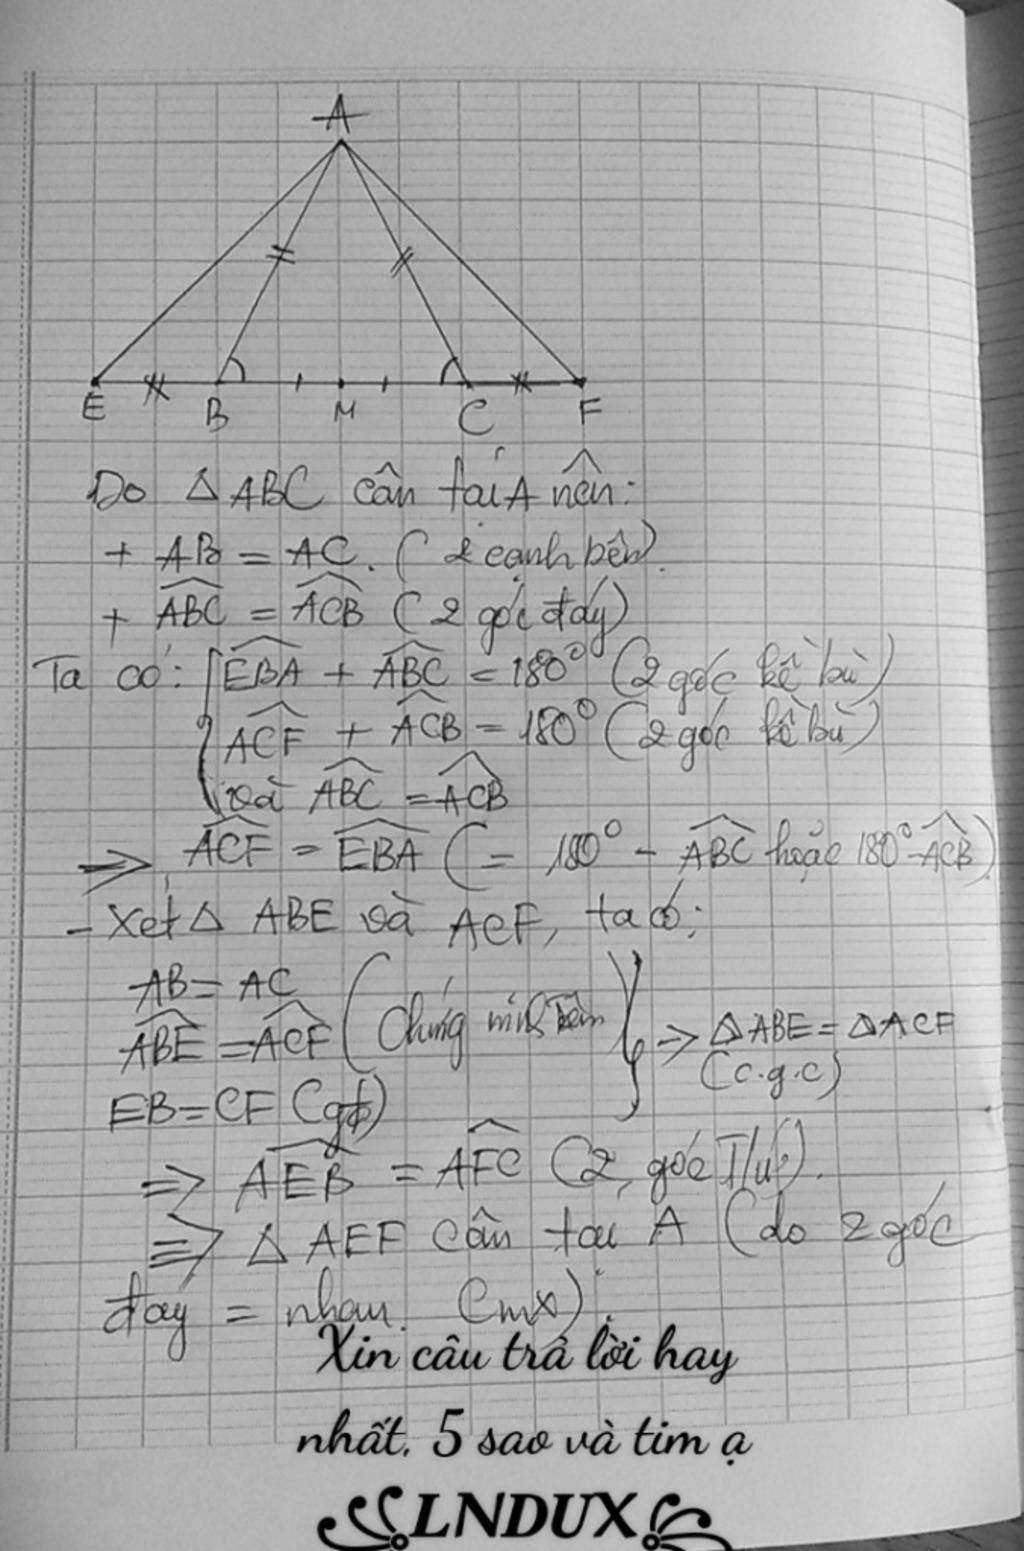 A
E B M C F
Do △ ABC cân tại A nên:
+ AB = AC. (2 cạnh bên).
+ ABC = ACB (2 góc đáy)
Ta có: EBA + ABC = 180° (2 góc kề bù)
ACF + ACB = 180° (2 góc kề bù)
và ABC = ACB
=> ACF = EBA (= 180° - ABC hoặc 180° - ACB)
- Xét △ ABE và ACF, ta có:
AB = AC
ABE = ACF (Chứng minh trên) } => △ ABE = △ ACF
(c.g.c)
EB = CF (gt)
=> AEB = AFC (2 góc T/ứ).
=> △ AEF cân tại A (do 2 góc
đáy = nhau. Cmx).
Xin câu trả lời hay
nhất, 5 sao và tim ạ
LNDUX